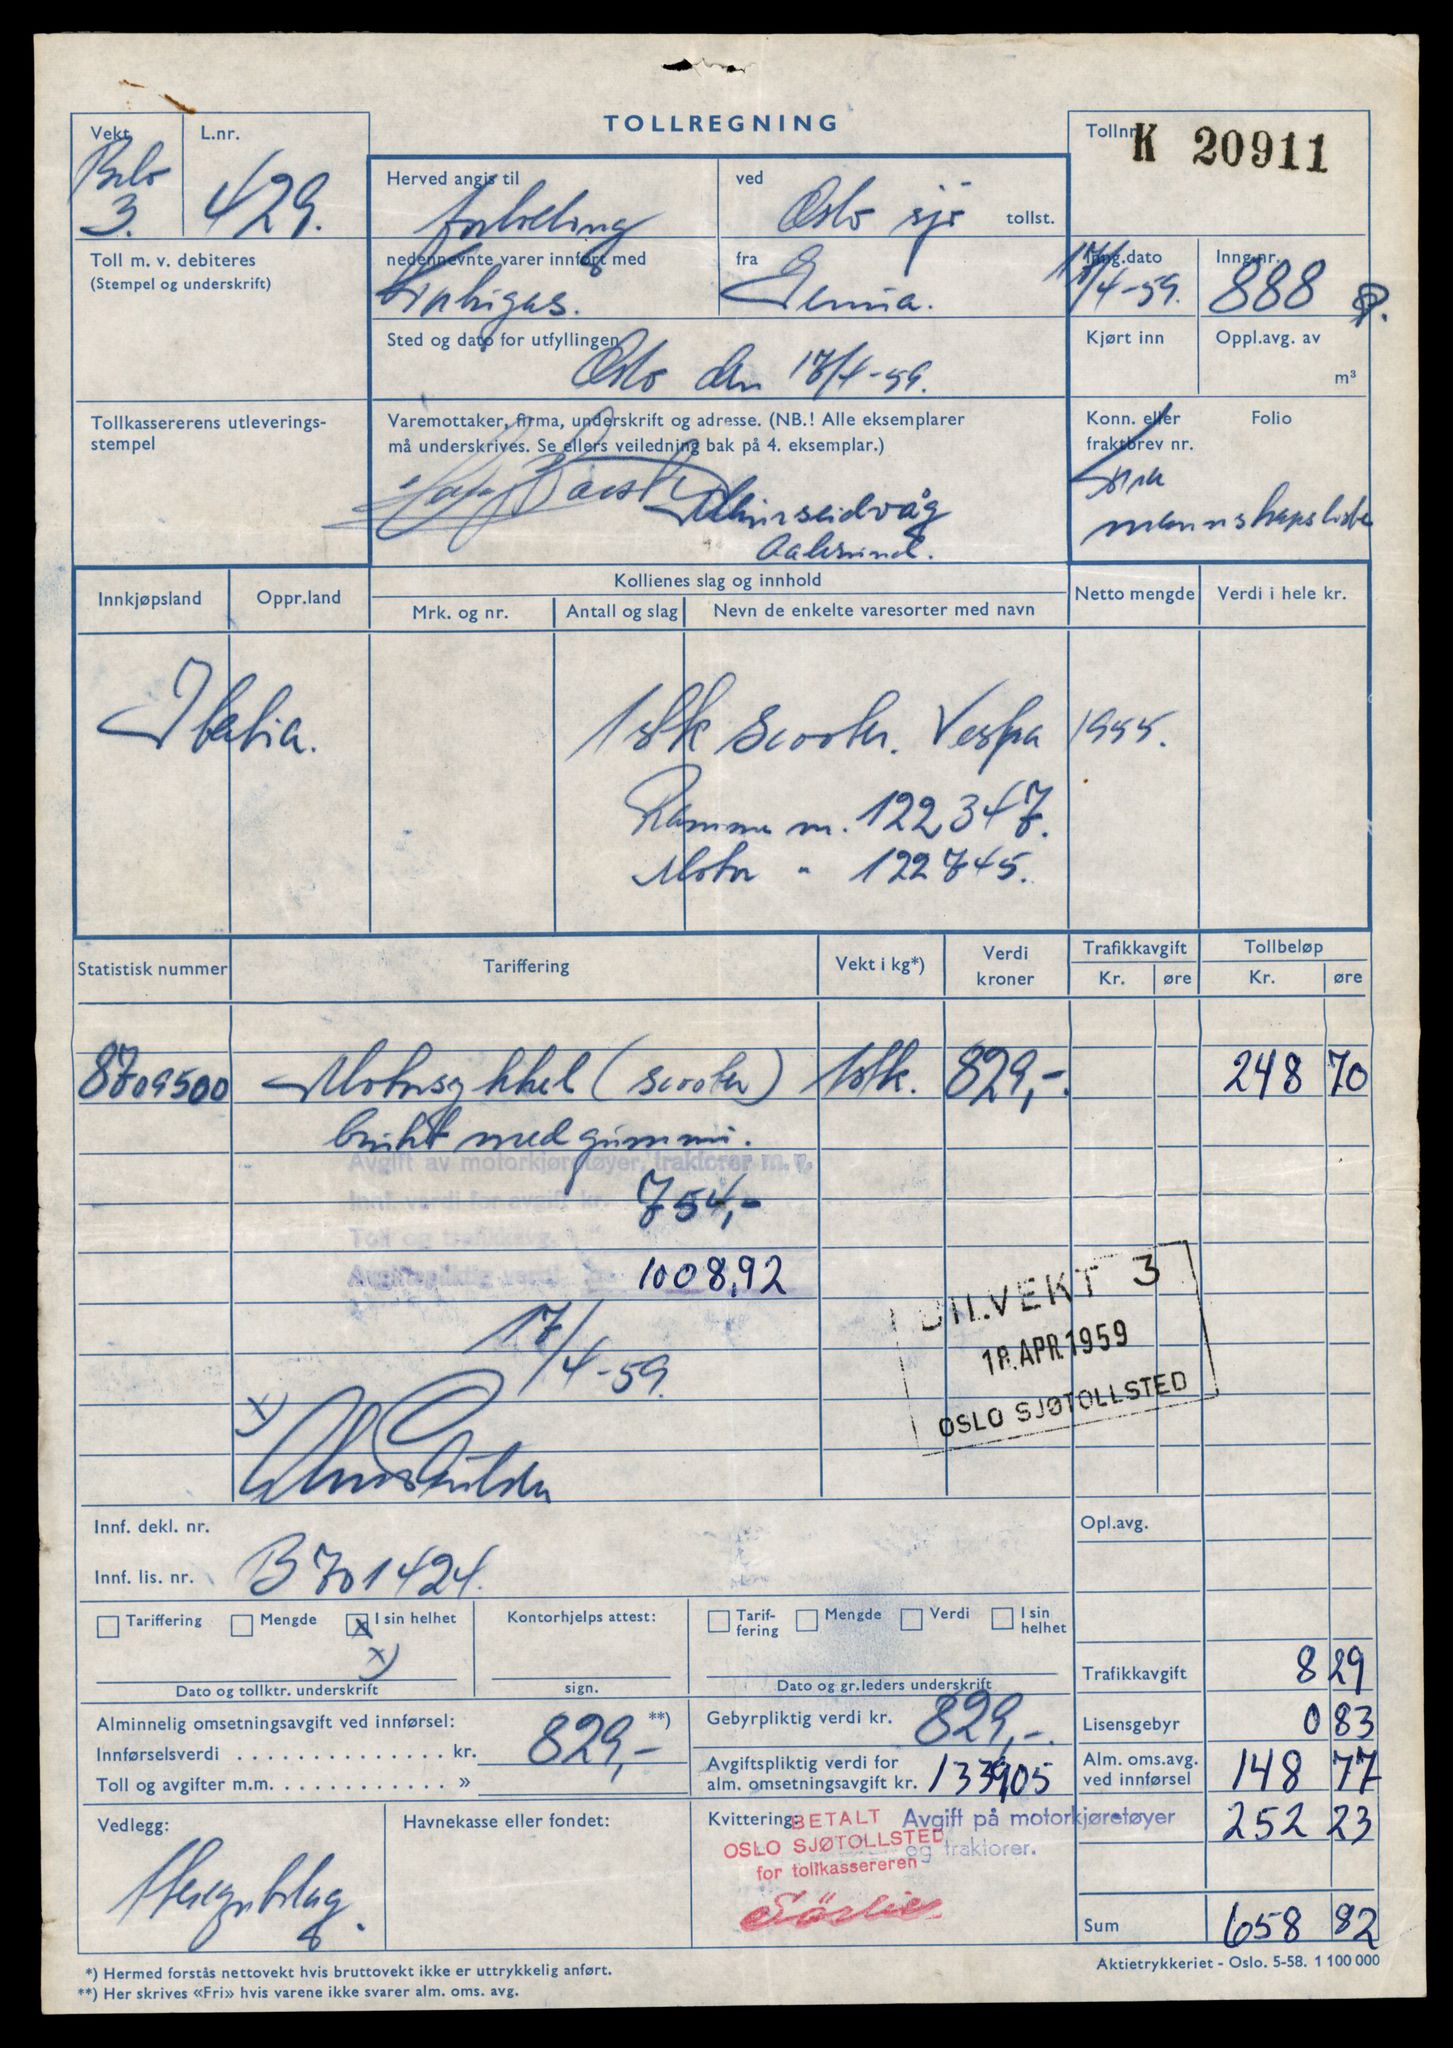 TOLLREGNING
Vekt
3.
L.nr.
429.
Tollnr.
K 20911
Herved angis til
fortolling
ved
Oslo sjø tollst.
Toll m. v. debiteres
(Stempel og underskrift)
nedennevnte varer innført med
fra
Genua.
Inng.dato
17/4-59.
Inng.nr.
888
Sted og dato for utfyllingen
Oslo den 17/4-59.
Kjørt inn
Oppl.avg. av
m³
Tollkassererens utleverings-
stempel
Varemottaker, firma, underskrift og adresse. (NB.! Alle eksemplarer
må underskrives. Se ellers veiledning bak på 4. eksemplar.)
Aalesund.
Konn. eller
fraktbrev nr.
Folio
mannskapsliste
Innkjøpsland
Oppr.land
Kollienes slag og innhold
Mrk. og nr.
Antall og slag
Nevn de enkelte varesorter med navn
Netto mengde
Verdi i hele kr.
Italia.
1 stk scooter. Vespa 1955.
Ramme nr. 122347.
Motor " 122745.
Statistisk nummer
Tariffering
Vekt i kg*)
Verdi
kroner
Trafikkavgift
Kr.
øre
Tollbeløp
Kr.
øre
8709500 Motorsykkel (scooter) 1 stk. 829,-. 248 70
brukt med gummi.
Avgift av motorkjøretøyer, traktorer m. v.
Innf. verdi for avgift kr. 754,-
Toll og trafikkavg.
Avgiftspliktig verdi 1008,92
17/4-59.
x)
DIL.VEKT 3
18. APR 1959
OSLO SJØTOLLSTED
Innf. dekl. nr.
Innf. lis. nr. B 701424.
Opl.avg.
Tariffering
Mengde
x I sin helhet
x)
Dato og tollktr. underskrift
Kontorhjelps attest:
sign.
Tarif-
fering
Mengde
Verdi
I sin
helhet
Dato og gr.leders underskrift
Trafikkavgift 8 29
Alminnelig omsetningsavgift ved innførsel:
Innførselsverdi . . . . . . . . . . . . . . . kr. 829,- **)
Toll og avgifter m.m. . . . . . . . . . . . . »
Gebyrpliktig verdi kr. 829,-.
Avgiftspliktig verdi for
alm. omsetningsavgift kr. 133905
Lisensgebyr 0 83
Alm. oms.avg.
ved innførsel 148 77
Vedlegg:
Havnekasse eller fondet:
Kvittering:
BETALT
OSLO SJØTOLLSTED
for tollkassereren
Avgift på motorkjøretøyer
og traktorer.
252 23
Sum 658 82
*) Hermed forstås nettovekt hvis bruttovekt ikke er uttrykkelig anført.
**) Her skrives «Fri» hvis varene ikke svarer alm. oms. avg.
Aktietrykkeriet - Oslo. 5-58. 1 100 000